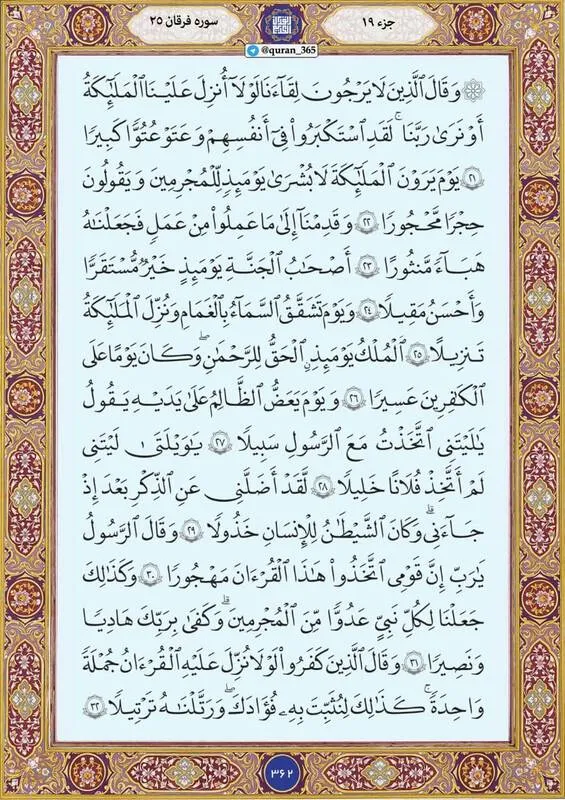 جزء ۱۹
سوره فرقان ۲۵
@quran_365
۞ وَقَالَ ٱلَّذِينَ لَا يَرْجُونَ لِقَآءَنَا لَوْلَآ أُنزِلَ عَلَيْنَا ٱلْمَلَٰٓئِكَةُ
أَوْ نَرَىٰ رَبَّنَا ۗ لَقَدِ ٱسْتَكْبَرُوا۟ فِىٓ أَنفُسِهِمْ وَعَتَوْ عُتُوًّا كَبِيرًا
۝۲۱ يَوْمَ يَرَوْنَ ٱلْمَلَٰٓئِكَةَ لَا بُشْرَىٰ يَوْمَئِذٍ لِّلْمُجْرِمِينَ وَيَقُولُونَ
حِجْرًا مَّحْجُورًا ۝۲۲ وَقَدِمْنَآ إِلَىٰ مَا عَمِلُوا۟ مِنْ عَمَلٍ فَجَعَلْنَٰهُ
هَبَآءً مَّنثُورًا ۝۲۳ أَصْحَٰبُ ٱلْجَنَّةِ يَوْمَئِذٍ خَيْرٌ مُّسْتَقَرًّا
وَأَحْسَنُ مَقِيلًا ۝۲۴ وَيَوْمَ تَشَقَّقُ ٱلسَّمَآءُ بِٱلْغَمَٰمِ وَنُزِّلَ ٱلْمَلَٰٓئِكَةُ
تَنزِيلًا ۝۲۵ ٱلْمُلْكُ يَوْمَئِذٍ ٱلْحَقُّ لِلرَّحْمَٰنِ ۚ وَكَانَ يَوْمًا عَلَى
ٱلْكَٰفِرِينَ عَسِيرًا ۝۲۶ وَيَوْمَ يَعَضُّ ٱلظَّالِمُ عَلَىٰ يَدَيْهِ يَقُولُ
يَٰلَيْتَنِى ٱتَّخَذْتُ مَعَ ٱلرَّسُولِ سَبِيلًا ۝۲۷ يَٰوَيْلَتَىٰ لَيْتَنِى
لَمْ أَتَّخِذْ فُلَانًا خَلِيلًا ۝۲۸ لَّقَدْ أَضَلَّنِى عَنِ ٱلذِّكْرِ بَعْدَ إِذْ
جَآءَنِى ۗ وَكَانَ ٱلشَّيْطَٰنُ لِلْإِنسَٰنِ خَذُولًا ۝۲۹ وَقَالَ ٱلرَّسُولُ
يَٰرَبِّ إِنَّ قَوْمِى ٱتَّخَذُوا۟ هَٰذَا ٱلْقُرْءَانَ مَهْجُورًا ۝۳۰ وَكَذَٰلِكَ
جَعَلْنَا لِكُلِّ نَبِىٍّ عَدُوًّا مِّنَ ٱلْمُجْرِمِينَ ۗ وَكَفَىٰ بِرَبِّكَ هَادِيًا
وَنَصِيرًا ۝۳۱ وَقَالَ ٱلَّذِينَ كَفَرُوا۟ لَوْلَا نُزِّلَ عَلَيْهِ ٱلْقُرْءَانُ جُمْلَةً
وَٰحِدَةً ۚ كَذَٰلِكَ لِنُثَبِّتَ بِهِۦ فُؤَادَكَ ۖ وَرَتَّلْنَٰهُ تَرْتِيلًا ۝۳۲
۳۶۲